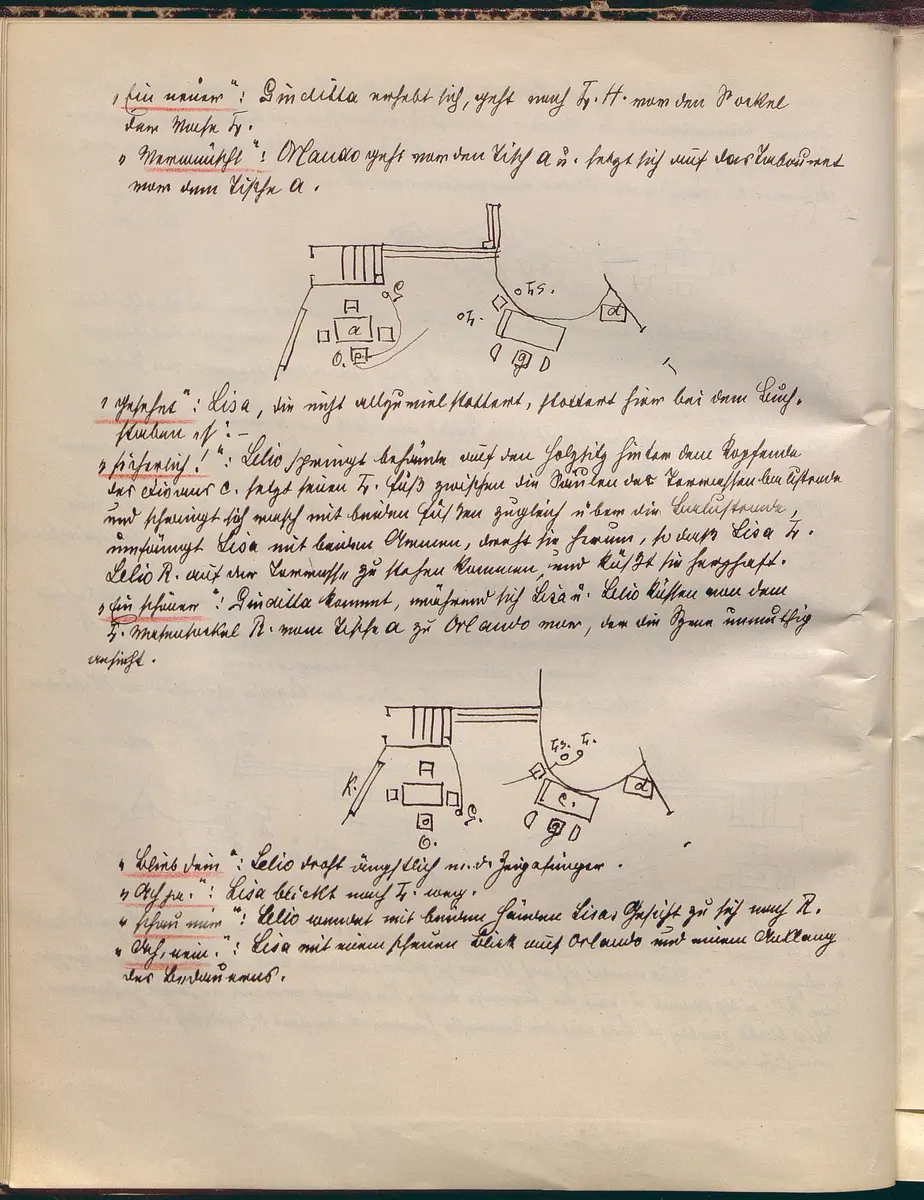 „Ein neuer“: Giuditta erhebt sich, geht nach L. H. vor den Sockel
der Vase L.
„Verwünscht“: Orlando geht vor den Tisch a u. setzt sich auf das Tabouret
vor dem Tische a.
G.
L.
LS.
a
d
O.
„gesehnt“: Lisa, die nicht allzuviel stottert, stottert hier bei dem Buch-
staben „s“: –
„sicherlich!“: Lelio springt behände auf den Holzsitz hinter dem Kopfende
des Divans c. setzt seinen L. Fuß zwischen die Säulen der Terrassenbalustrade
und schwingt sich rasch mit beiden Füßen zugleich über die Balustrade,
umfängt Lisa mit beiden Armen, dreht sie herum, so daß Lisa L.
Lelio R. auf der Terrasse zu stehen kommen, und küßt sie herzhaft.
„Ein schöner“: Giuditta kommt, während sich Lisa u. Lelio küssen von dem
L. Vasensockel R. vom Tische a zu Orlando vor, der die Szene unmuthig
ansieht.
R.
G.
c.
d
O.
„Bleib dein“: Lelio droht ängstlich m. d. Zeigefinger.
„Ach ja.“: Lisa blickt nach L. weg.
„schau mir“: Lelio wendet mit beiden Händen Lisas Gesicht zu sich nach R.
„Ach, nein.“: Lisa mit einem scheuen Blick auf Orlando und einem Anklang
des Bedauerns.